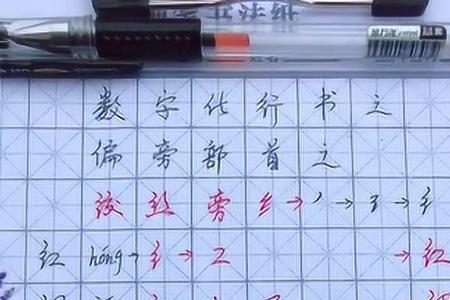 书法纸
数字化行书之
偏旁部首之
绞丝旁纟→丿→3→纟
红 hóng→纟→工 →红